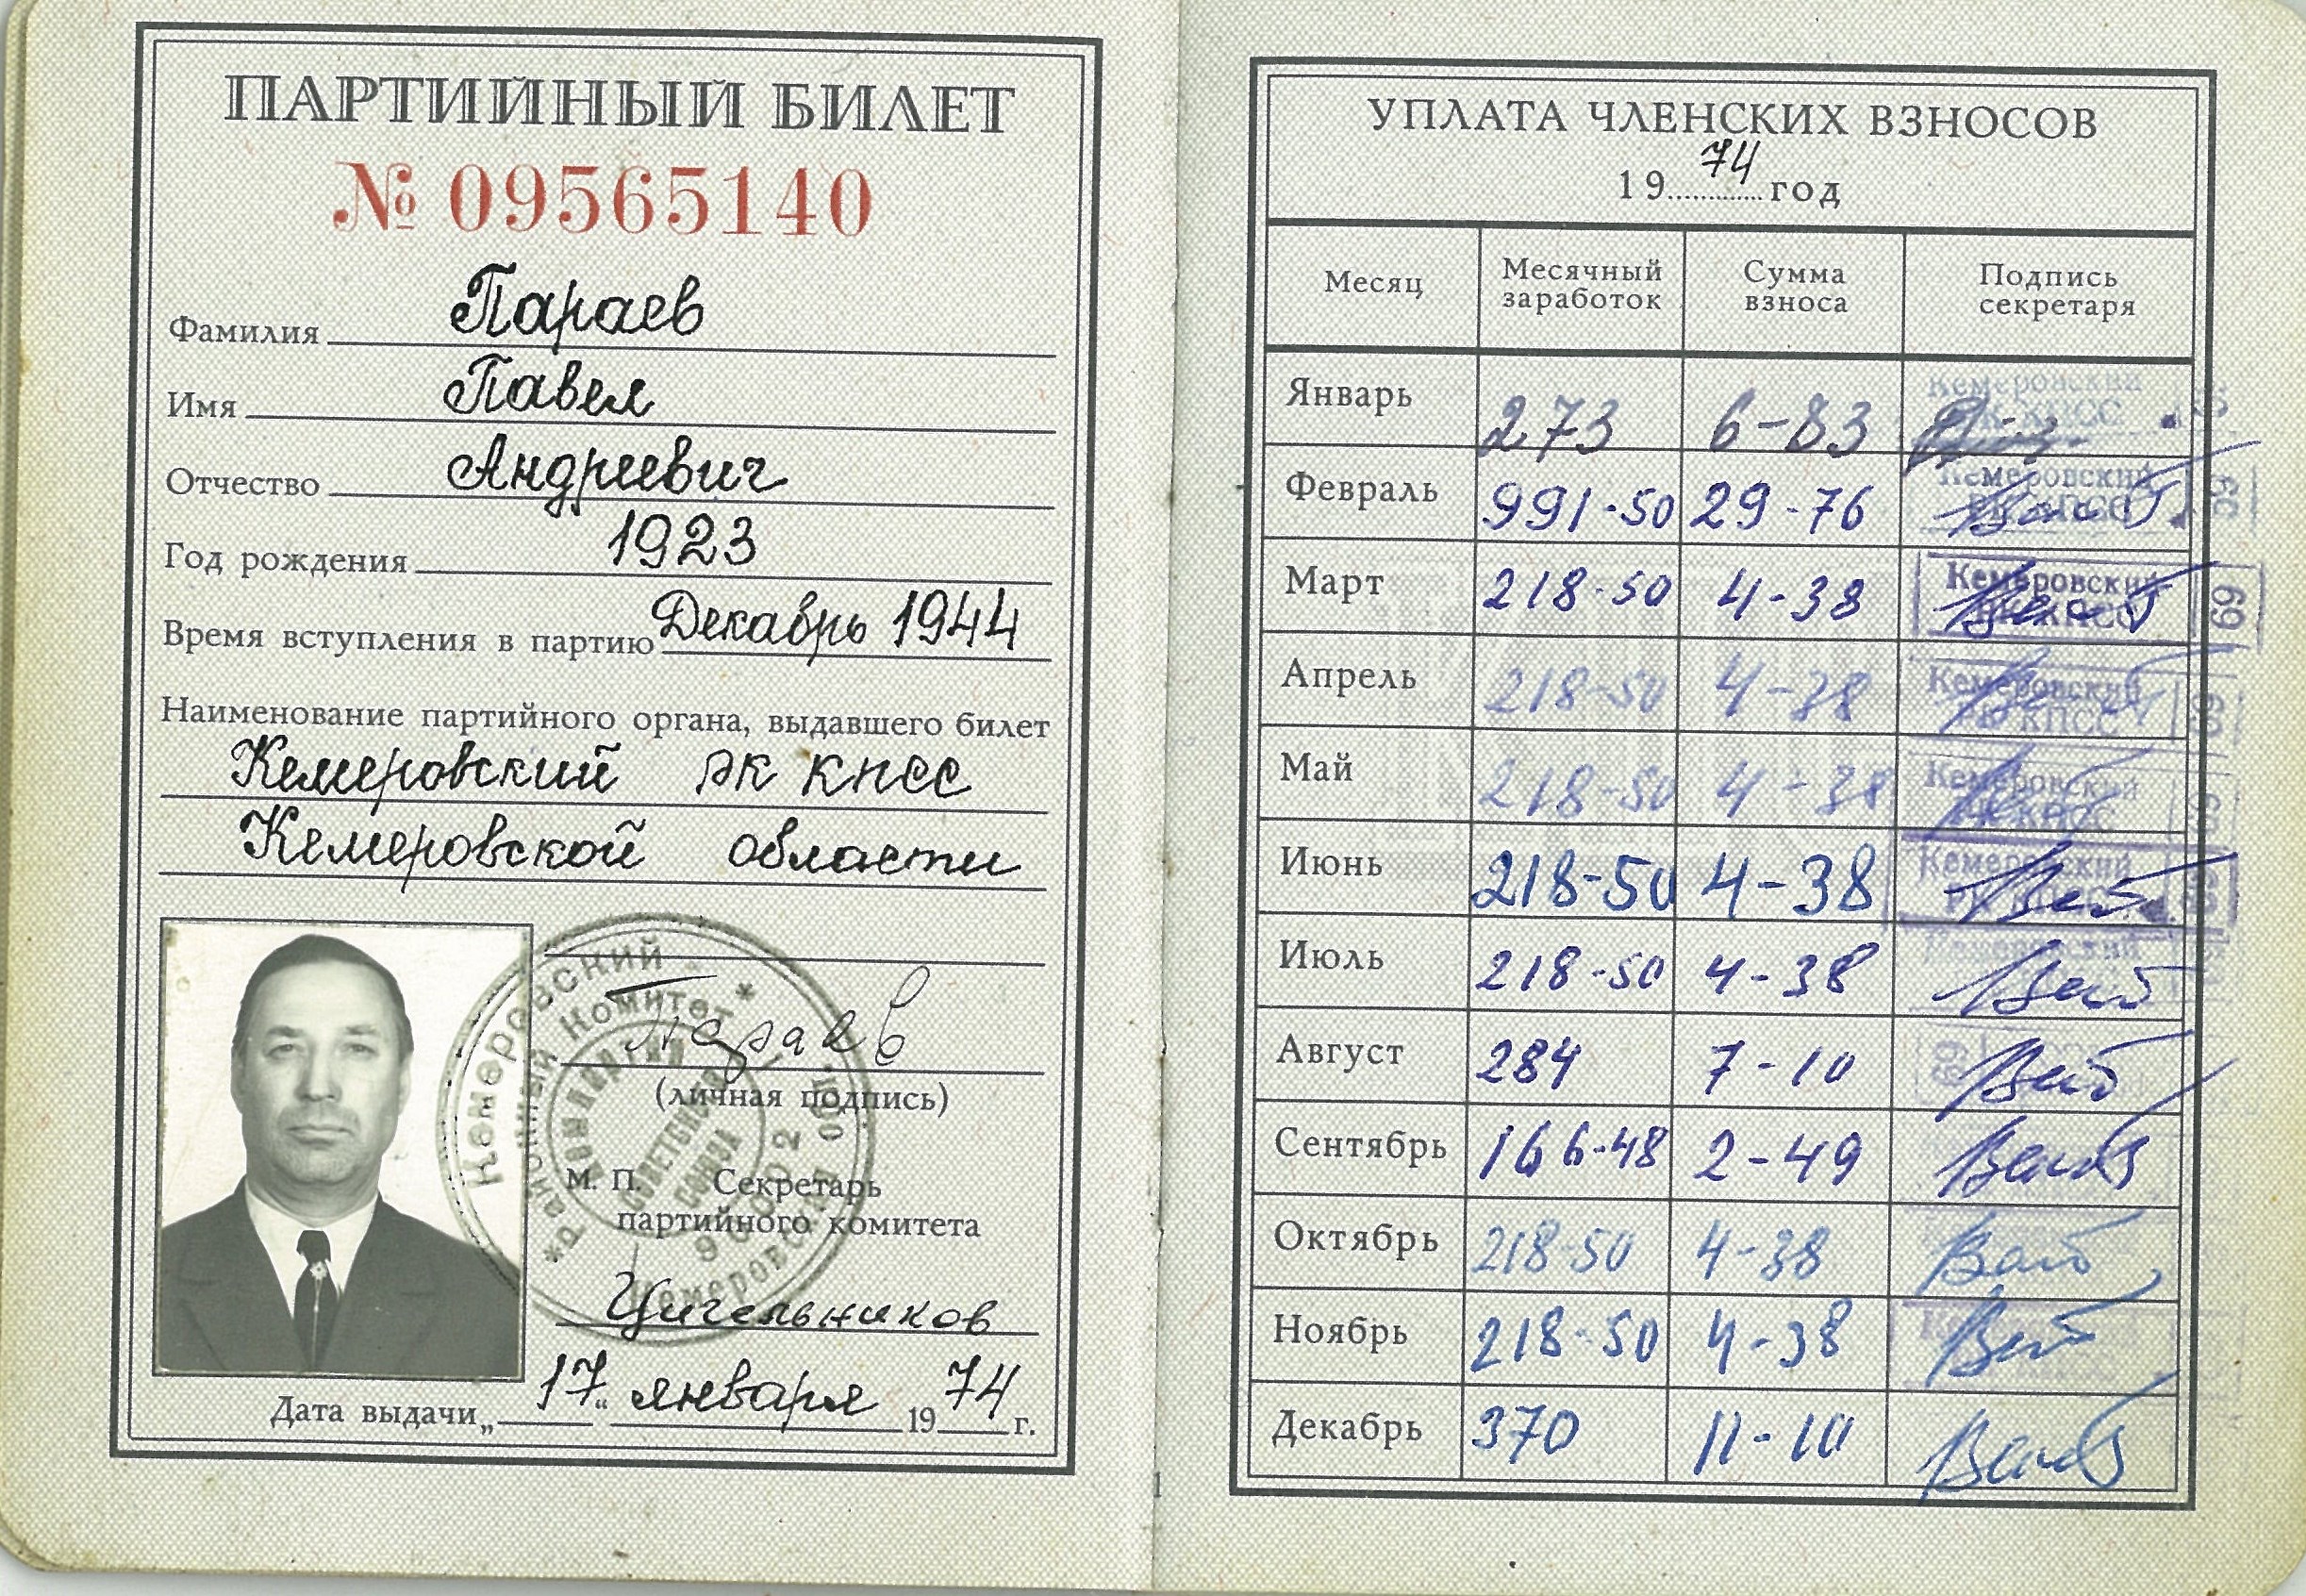 ПАРТИЙНЫЙ БИЛЕТ
№ 09565140
Фамилия Параев
Имя Павел
Отчество Андреевич
Год рождения 1923
Время вступления в партию Декабрь 1944
Наименование партийного органа, выдавшего билет
Кемеровский РК КПСС
Кемеровской области
Параев
(личная подпись)
М. П. Секретарь
партийного комитета
Цигельников
Дата выдачи „17“ января 1974 г.
Кемеровский
Районный Комитет
Советского
Союза
УПЛАТА ЧЛЕНСКИХ ВЗНОСОВ
1974 год
Месяц Месячный заработок Сумма взноса Подпись секретаря
Январь 273 6-83 Кемеровский РК КПСС
Февраль 991-50 29-76 Кемеровский РК КПСС 69
Март 218-50 4-38 Кемеровский РК КПСС 69
Апрель 218-50 4-38 Кемеровский РК КПСС 69
Май 218-50 4-38 Кемеровский РК КПСС 69
Июнь 218-50 4-38 Кемеровский РК КПСС 69
Июль 218-50 4-38 Кемеровский
Август 284 7-10 69
Сентябрь 166-48 2-49
Октябрь 218-50 4-38
Ноябрь 218-50 4-38
Декабрь 370 11-10